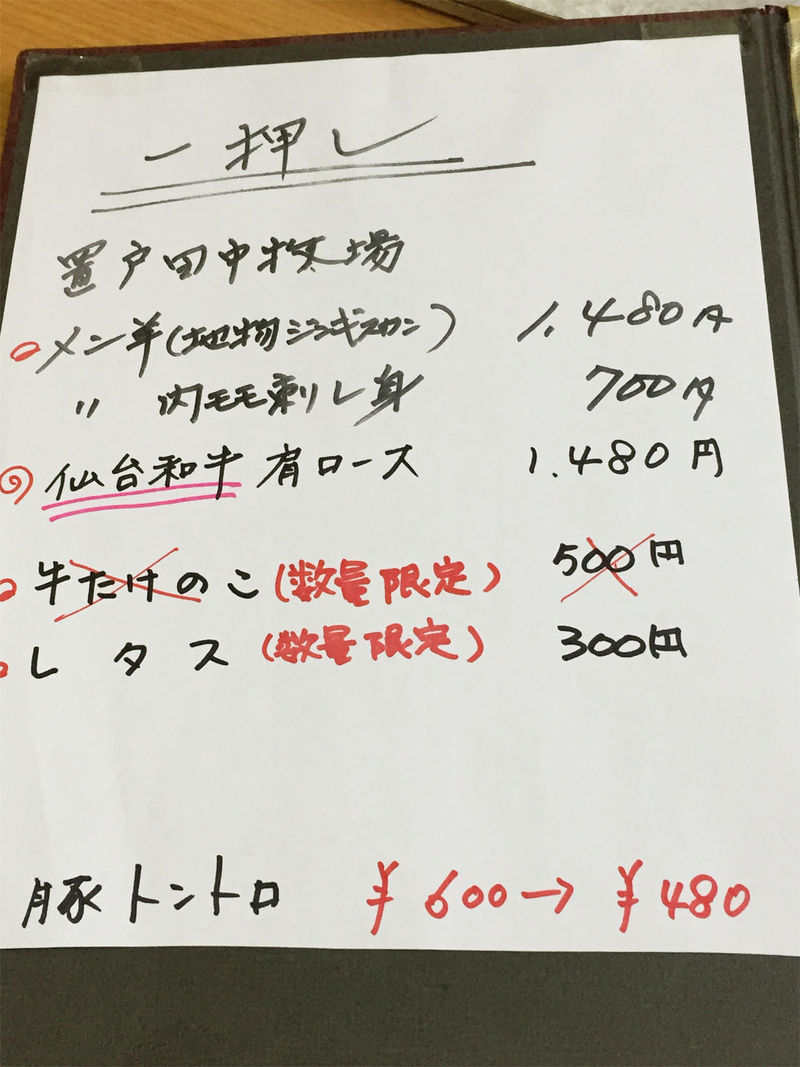 一押し
置戸田中牧場
メン羊(地物ジンギスカン) 1.480円
〃 内モモ刺し身 700円
仙台和牛 肩ロース 1.480円
牛たけのこ(数量限定) 500円
レタス(数量限定) 300円
豚トントロ ¥600→¥480